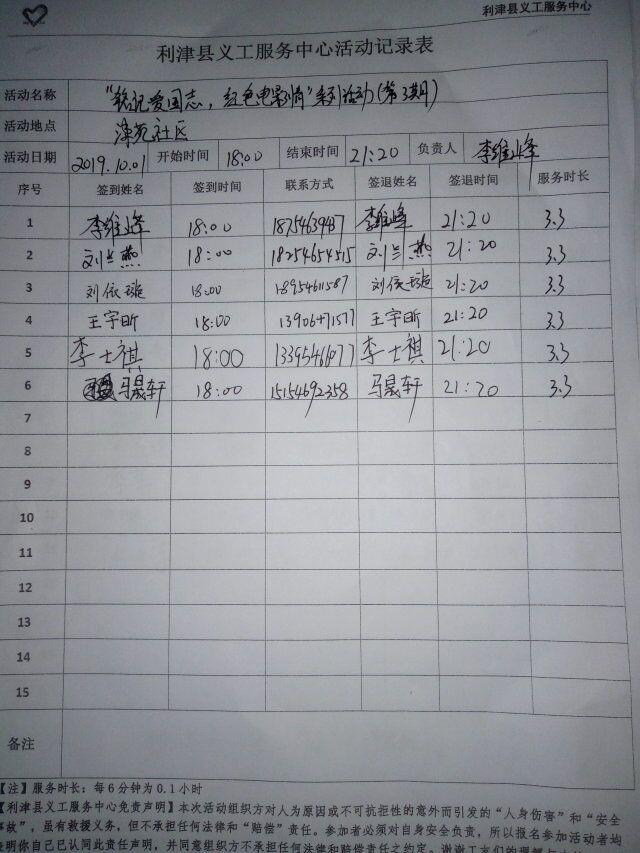 利津县义工服务中心
利津县义工服务中心活动记录表
活动名称 “铭记爱国志，红色电影情”系列活动（第3期）
活动地点 津苑社区
活动日期 2019.10.01 开始时间 18:00 结束时间 21:20 负责人 李维峰
序号 签到姓名 签到时间 联系方式 签退姓名 签退时间 服务时长
1 李维峰 18:00 李维峰 21:20 3.3
2 刘兰燕 18:00 18254654515 刘兰燕 21:20 3.3
3 刘依璇 18:00 18954611587 刘依璇 21:20 3.3
4 王宇昕 18:00 13906471577 王宇昕 21:20 3.3
5 李士祺 18:00 13395466077 李士祺 21:20 3.3
6 马晟轩 18:00 15154692358 马晟轩 21:20 3.3
7
8
9
10
11
12
13
14
15
备注
【注】服务时长：每6分钟为0.1小时
【利津县义工服务中心免责声明】本次活动组织方对人为原因或不可抗拒性的意外而引发的“人身伤害”和“安全
事故”，虽有救援义务，但不承担任何法律和“赔偿”责任。参加者必须对自身安全负责，所以报名参加活动者均
证明你自己已认同此责任声明，并同意组织方不承担任何法律和赔偿责任之约定。